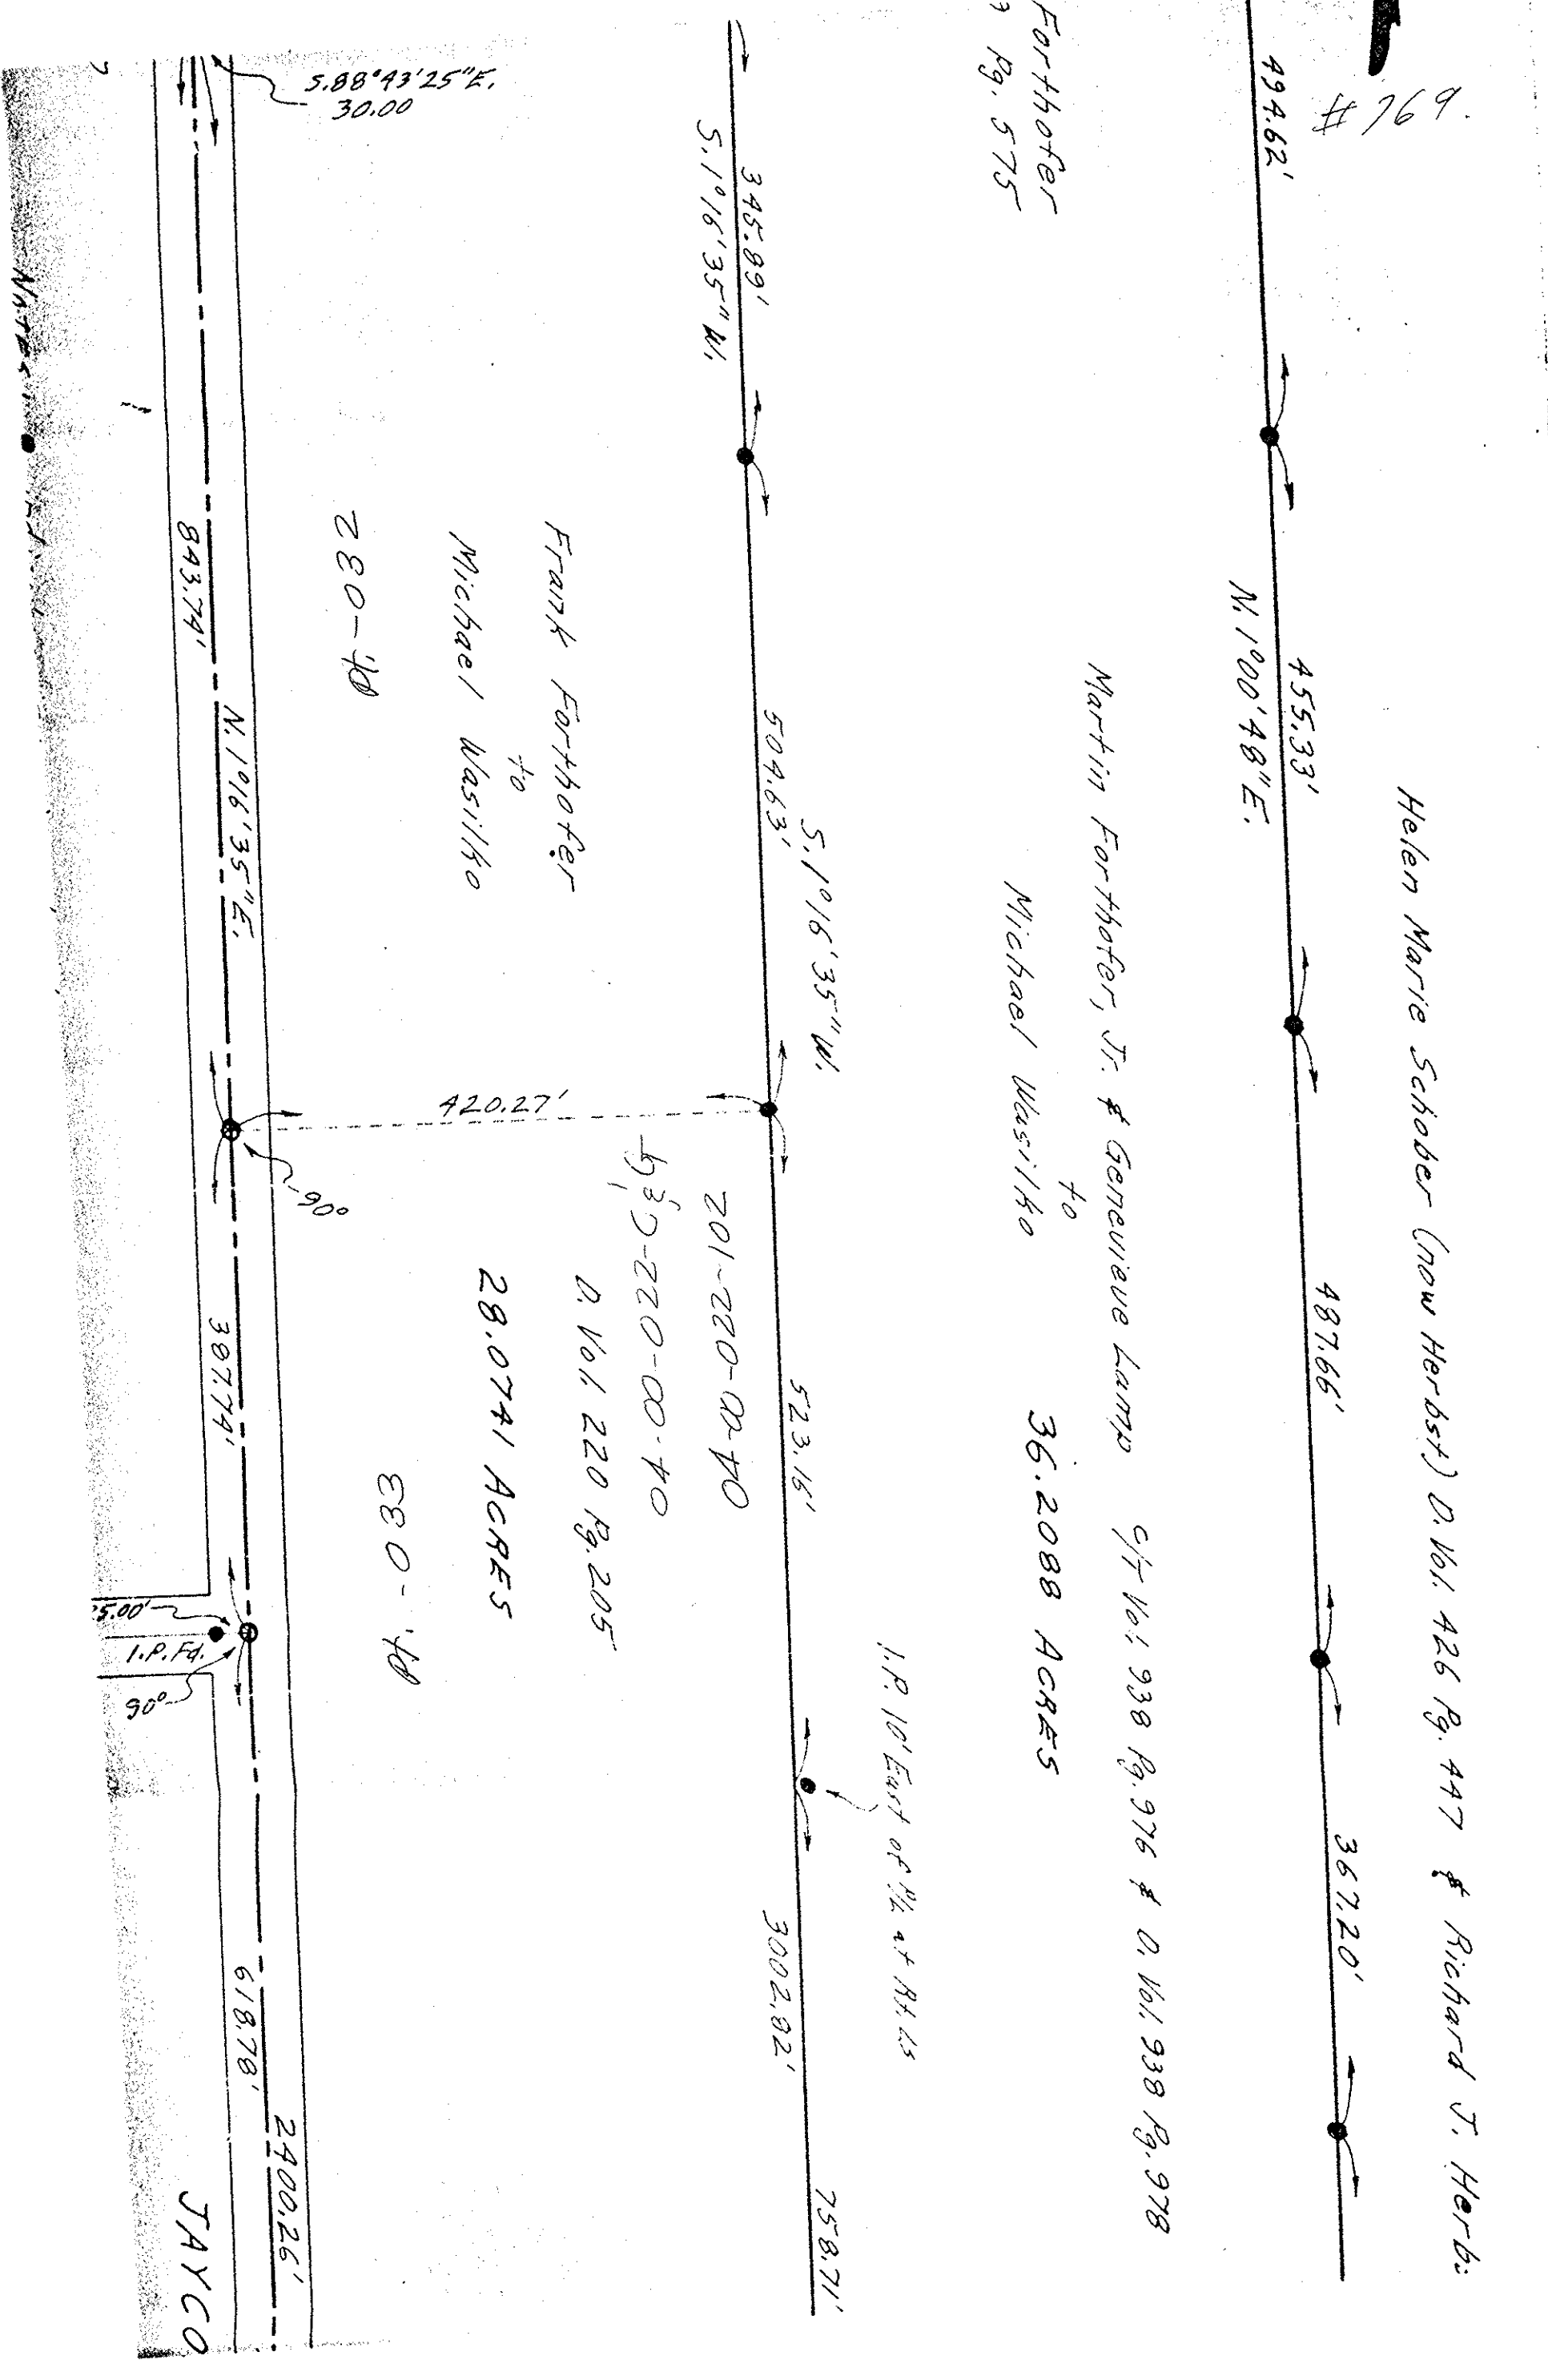 #769.
Helen Marie Schober (now Herbst) D. Vol. 426 Pg. 447 & Richard J. Herb
494.62'
455.33'
487.66'
367.20'
N. 1°00'48"E.
Martin Forthofer, Jr. & Genevieve Lamp C/T Vol. 938 Pg. 976 & D. Vol. 938 Pg. 978
to
Michael Wasilko
36.2088 ACRES
Forthofer
Pg. 575
I.P. 10' East of P/L at Rt. Ls
S. 1°16'35" W.
345.89'
504.63'
523.16'
3002.82'
758.71'
S. 1°16'35" W.
201-220-00-40
220-00-40
D. Vol. 220 Pg. 205
28.0741 ACRES
Frank Forthofer
to
Michael Wasilko
420.27'
280-
033
S.88°43'25"E.
30.00
90°
N. 1°16'35"E.
2400.26'
843.74'
387.74'
618.78'
5.00'
I.P. Fd.
90°
JAYCO